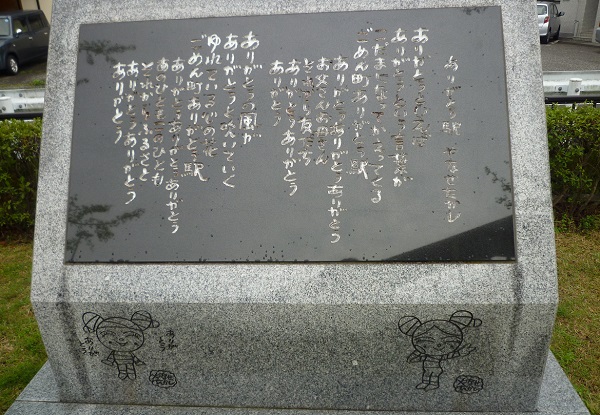 ありがとう駅 やなせたかし
ありがとうと
ありがとうという言葉が
こだまになってかえってくる
ごめん町ありがとう駅
ありがとうありがとうありがとう
お父さんお母さん
友だち
ありがとうありがとう
ありがとう
ありがとうの風が
ありがとうと吹いていく
ゆれている
ごめん町ありがとう駅
ありがとうありがとうありがとう
あのひともこのひとも
ふるさと
ありがとうありがとう
ありがとう
ありがとう
ありがとう